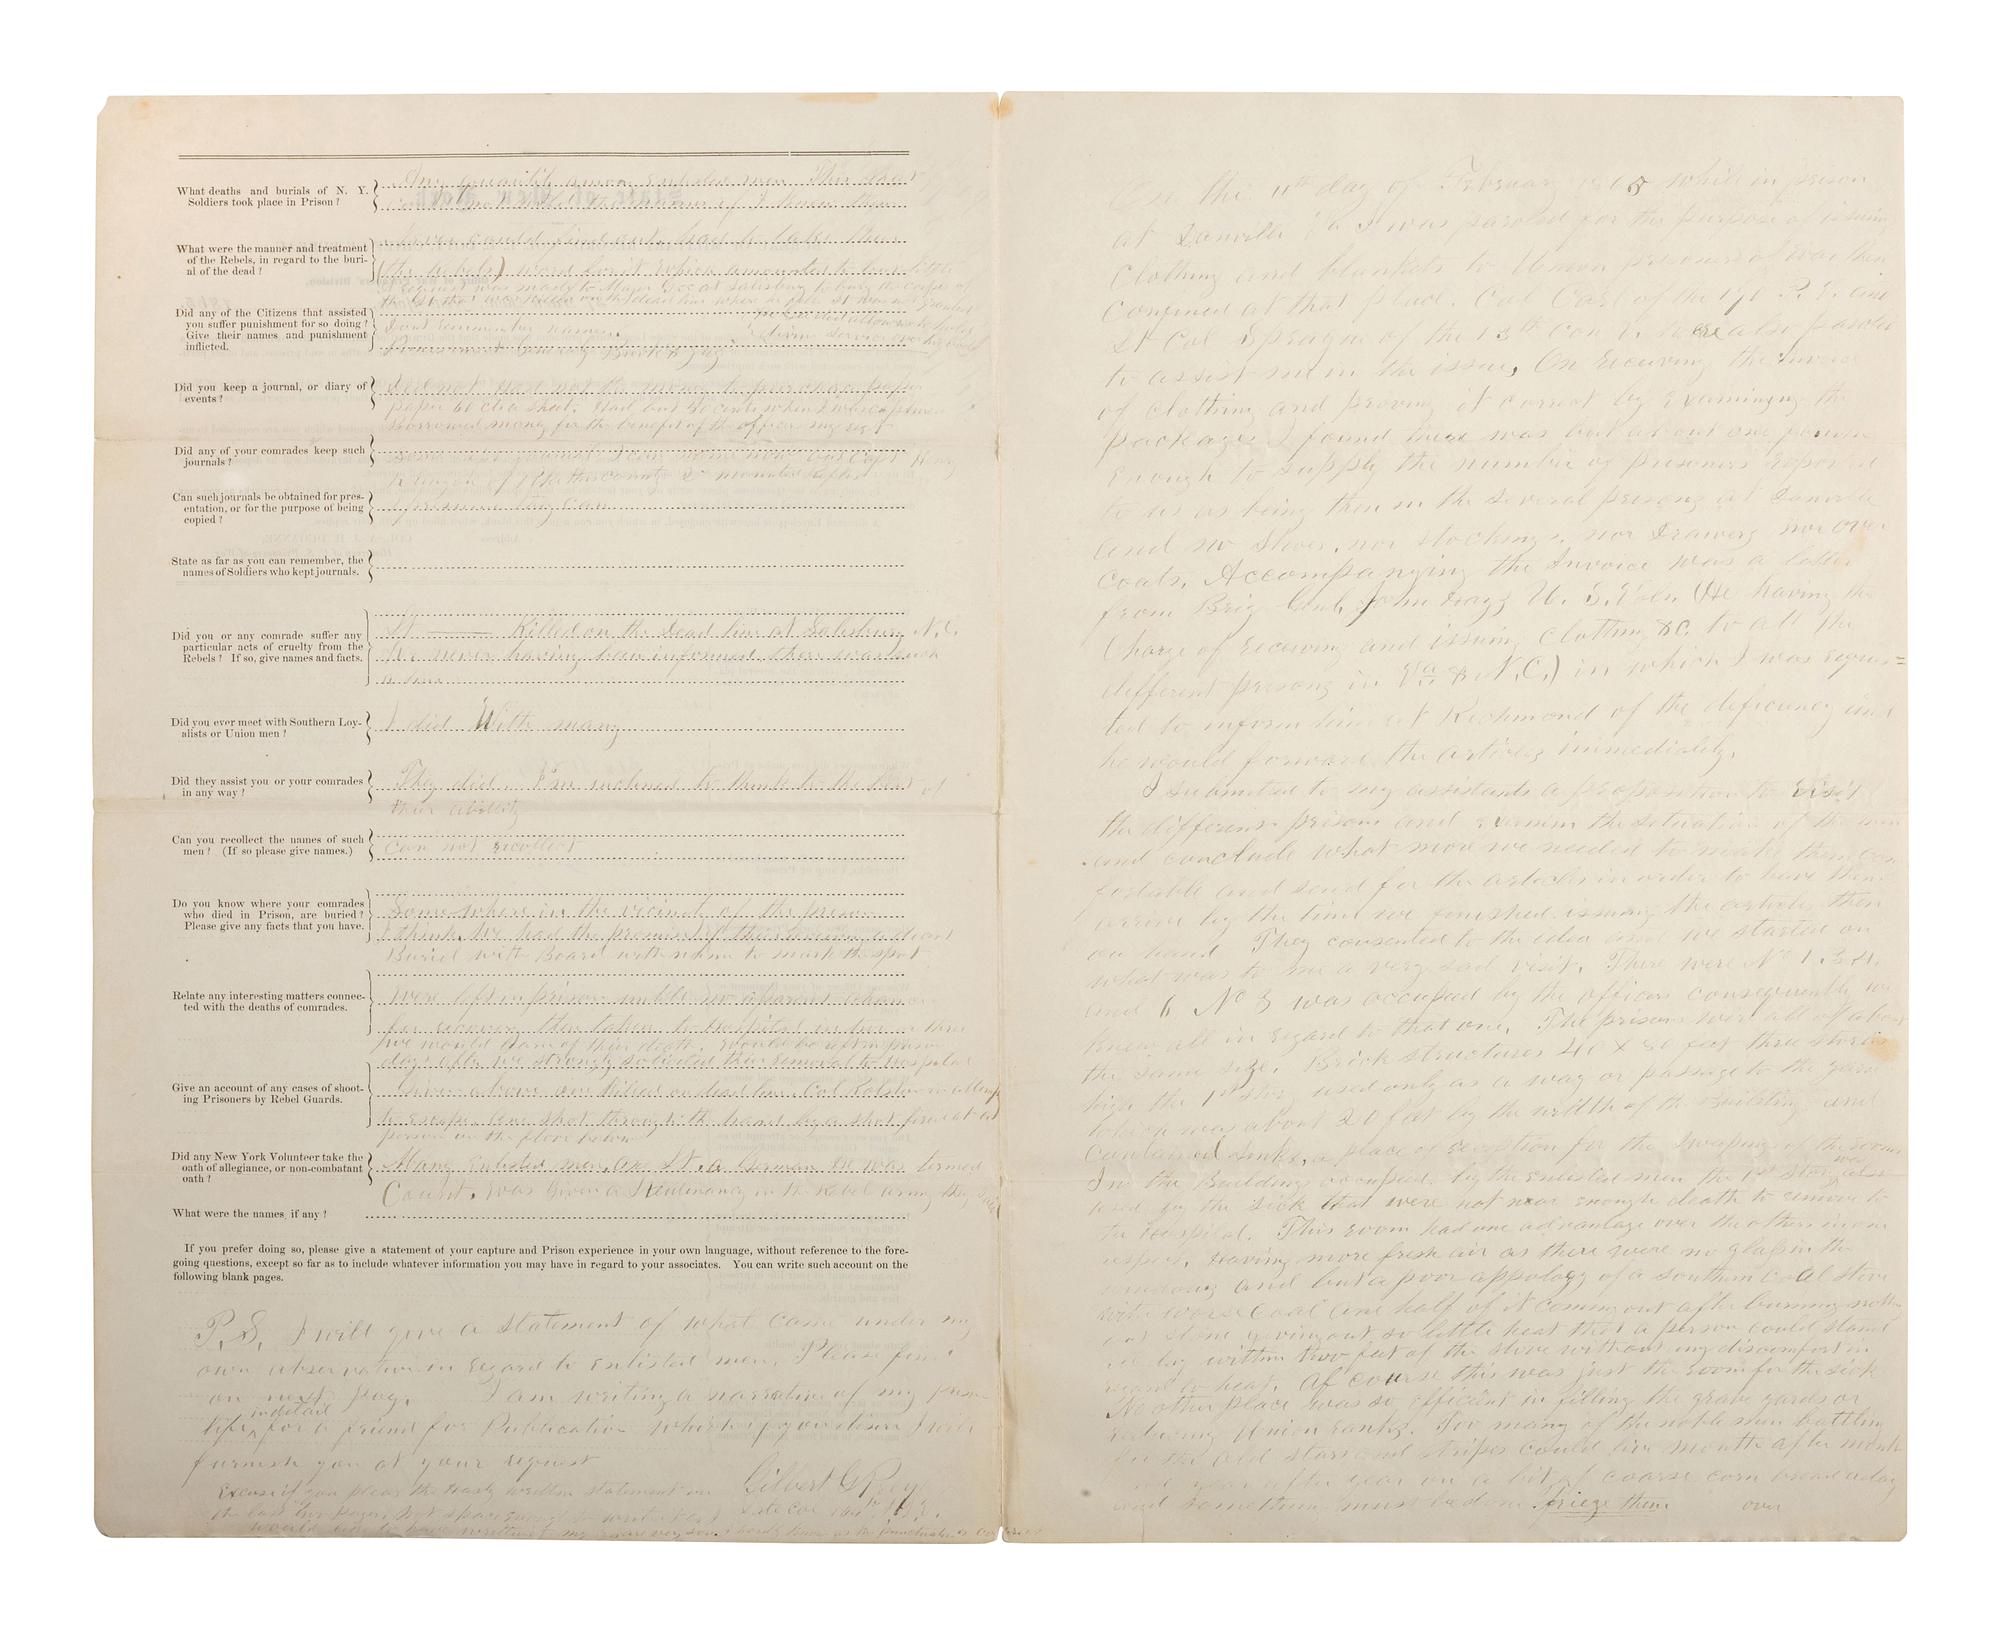 What deaths and burials of N. Y.
Soldiers took place in Prison?
Any quantity among Enlisted men This dear
What were the manner and treatment
of the Rebels, in regard to the buri-
al of the dead?
Never could find out, had to take their
(the Rebels) word for it which amounted to but little
request was made to Major Gee at Salisbury to bury the corpse of
Did any of the Citizens that assisted
you suffer punishment for so doing?
Give their names and punishment
inflicted.
Dont remember names.
Did you keep a journal, or diary of
events?
did not had not the money to purchase paper
paper 60 cts a sheet. Had but 40 cents when I was captured
borrowed money for the benefit of the officers my
Did any of your comrades keep such
journals?
Can such journals be obtained for pres-
entation, or for the purpose of being
copied?
I presume they can
State as far as you can remember, the
names of Soldiers who kept journals.
Did you or any comrade suffer any
particular acts of cruelty from the
Rebels? If so, give names and facts.
Lt —— Killed on the dead line at Salisbury N.C.
He never having been informed there was such
a line
Did you ever meet with Southern Loy-
alists or Union men?
I did With many
Did they assist you or your comrades
in any way?
They did. I'm inclined to think to the best of
their ability
Can you recollect the names of such
men? (If so please give names.)
Can not recollect
Do you know where your comrades
who died in Prison, are buried?
Please give any facts that you have.
Some where in the vicinity of the prison
I think. We had the promise of their receiving a decent
Burial with Board with name to mark the spot
Relate any interesting matters connec-
ted with the deaths of comrades.
Were left in prison until no apparent chance
for recovery then taken to Hospital in two or three
we would learn of their death. would be left in prison
days after we strongly solicited their removal to Hospital
Give an account of any cases of shoot-
ing Prisoners by Rebel Guards.
Given above one killed on dead line. Col Ralston in attempt
to escape. One shot through the hand by a shot fired at a
person on the floor below
Did any New York Volunteer take the
oath of allegiance, or non-combatant
oath?
Many enlisted men, one Lt. a German He was termed
Count. was given a Lieutenancy in the Rebel army they
What were the names, if any?
If you prefer doing so, please give a statement of your capture and Prison experience in your own language, without reference to the fore-
going questions, except so far as to include whatever information you may have in regard to your associates. You can write such account on the
following blank pages.
P.S. I will give a statement of what came under my
own observation in regard to enlisted men. Please find
on next page. I am writing a narrative of my prison
in detail
life, for a friend for Publication which if you desire I will
furnish you at your request
Excuse if you please the hasty written statement on Gilbert G Prey
the last two pages, not space enough to write it as I Late Col 104th N.Y.
On the 11th day of February 1865 while in prison
at Danville Va I was paroled for the purpose of issuing
Clothing and blankets to Union prisoners of war then
confined at that place. Col Carl of the 191 P. V. and
Lt Col Sprague of the 13th Con V. were also paroled
to assist me in the issue. On receiving the invoice
of clothing and proving it correct by examining the
packages I found there was but about one
enough to supply the number of prisoners reported
to us as being then in the several prisons at Danville
and no Shoes, nor stockings, nor Drawers nor over
coats. Accompanying the Invoice was a letter
from Brig Genl. John Hays U. S. Vols. (He having the
Charge of receiving and issuing Clothing &c. to all the
different prisons in Va & N.C.) in which I was reques=
ted to inform him at Richmond of the deficiency and
he would forward the articles immediately.
I submitted to my assistants a proposition to visit
the different prisons and examine the situation of the men
and conclude what more we needed to make them com
fortable and send for the articles in order to have them
arrive by the time we finished issuing the articles then
on hand They consented to the idea and we started on
what was to me a very sad visit. There were No 1. 3. 4.
and 6 No 3 was occupied by the officers consequently we
knew all in regard to that one. The prisons were all of about
the same size. Brick structures 40 X 80 feet three stories
high the 1st story used only as a way or passage to the yard
which was about 20 feet by the width of the Building and
contained sinks, a place of reception for the sweepings of the rooms
was
In the Buildings occupied by the enlisted men the 1st story also
used by the sick that were not near enough death to remove to
the Hospital. This room had one advantage over the others in one
respect, Having more fresh air as there were no glass in the
windows and but a poor appology of a southern coal stove
with worse coal one half of it coming out after burning nothing
but stone giving out so little heat that a person could stand
all day within two feet of the stove without any discomfort in
regard to heat. Of course this was just the room for the sick
No other place was so efficient in filling the grave yards or
reducing Union ranks. Too many of the noble men battling
for the old stars and stripes could live month after month
and year after year on a bit of coarse corn bread a day
and something must be done. frieze them over